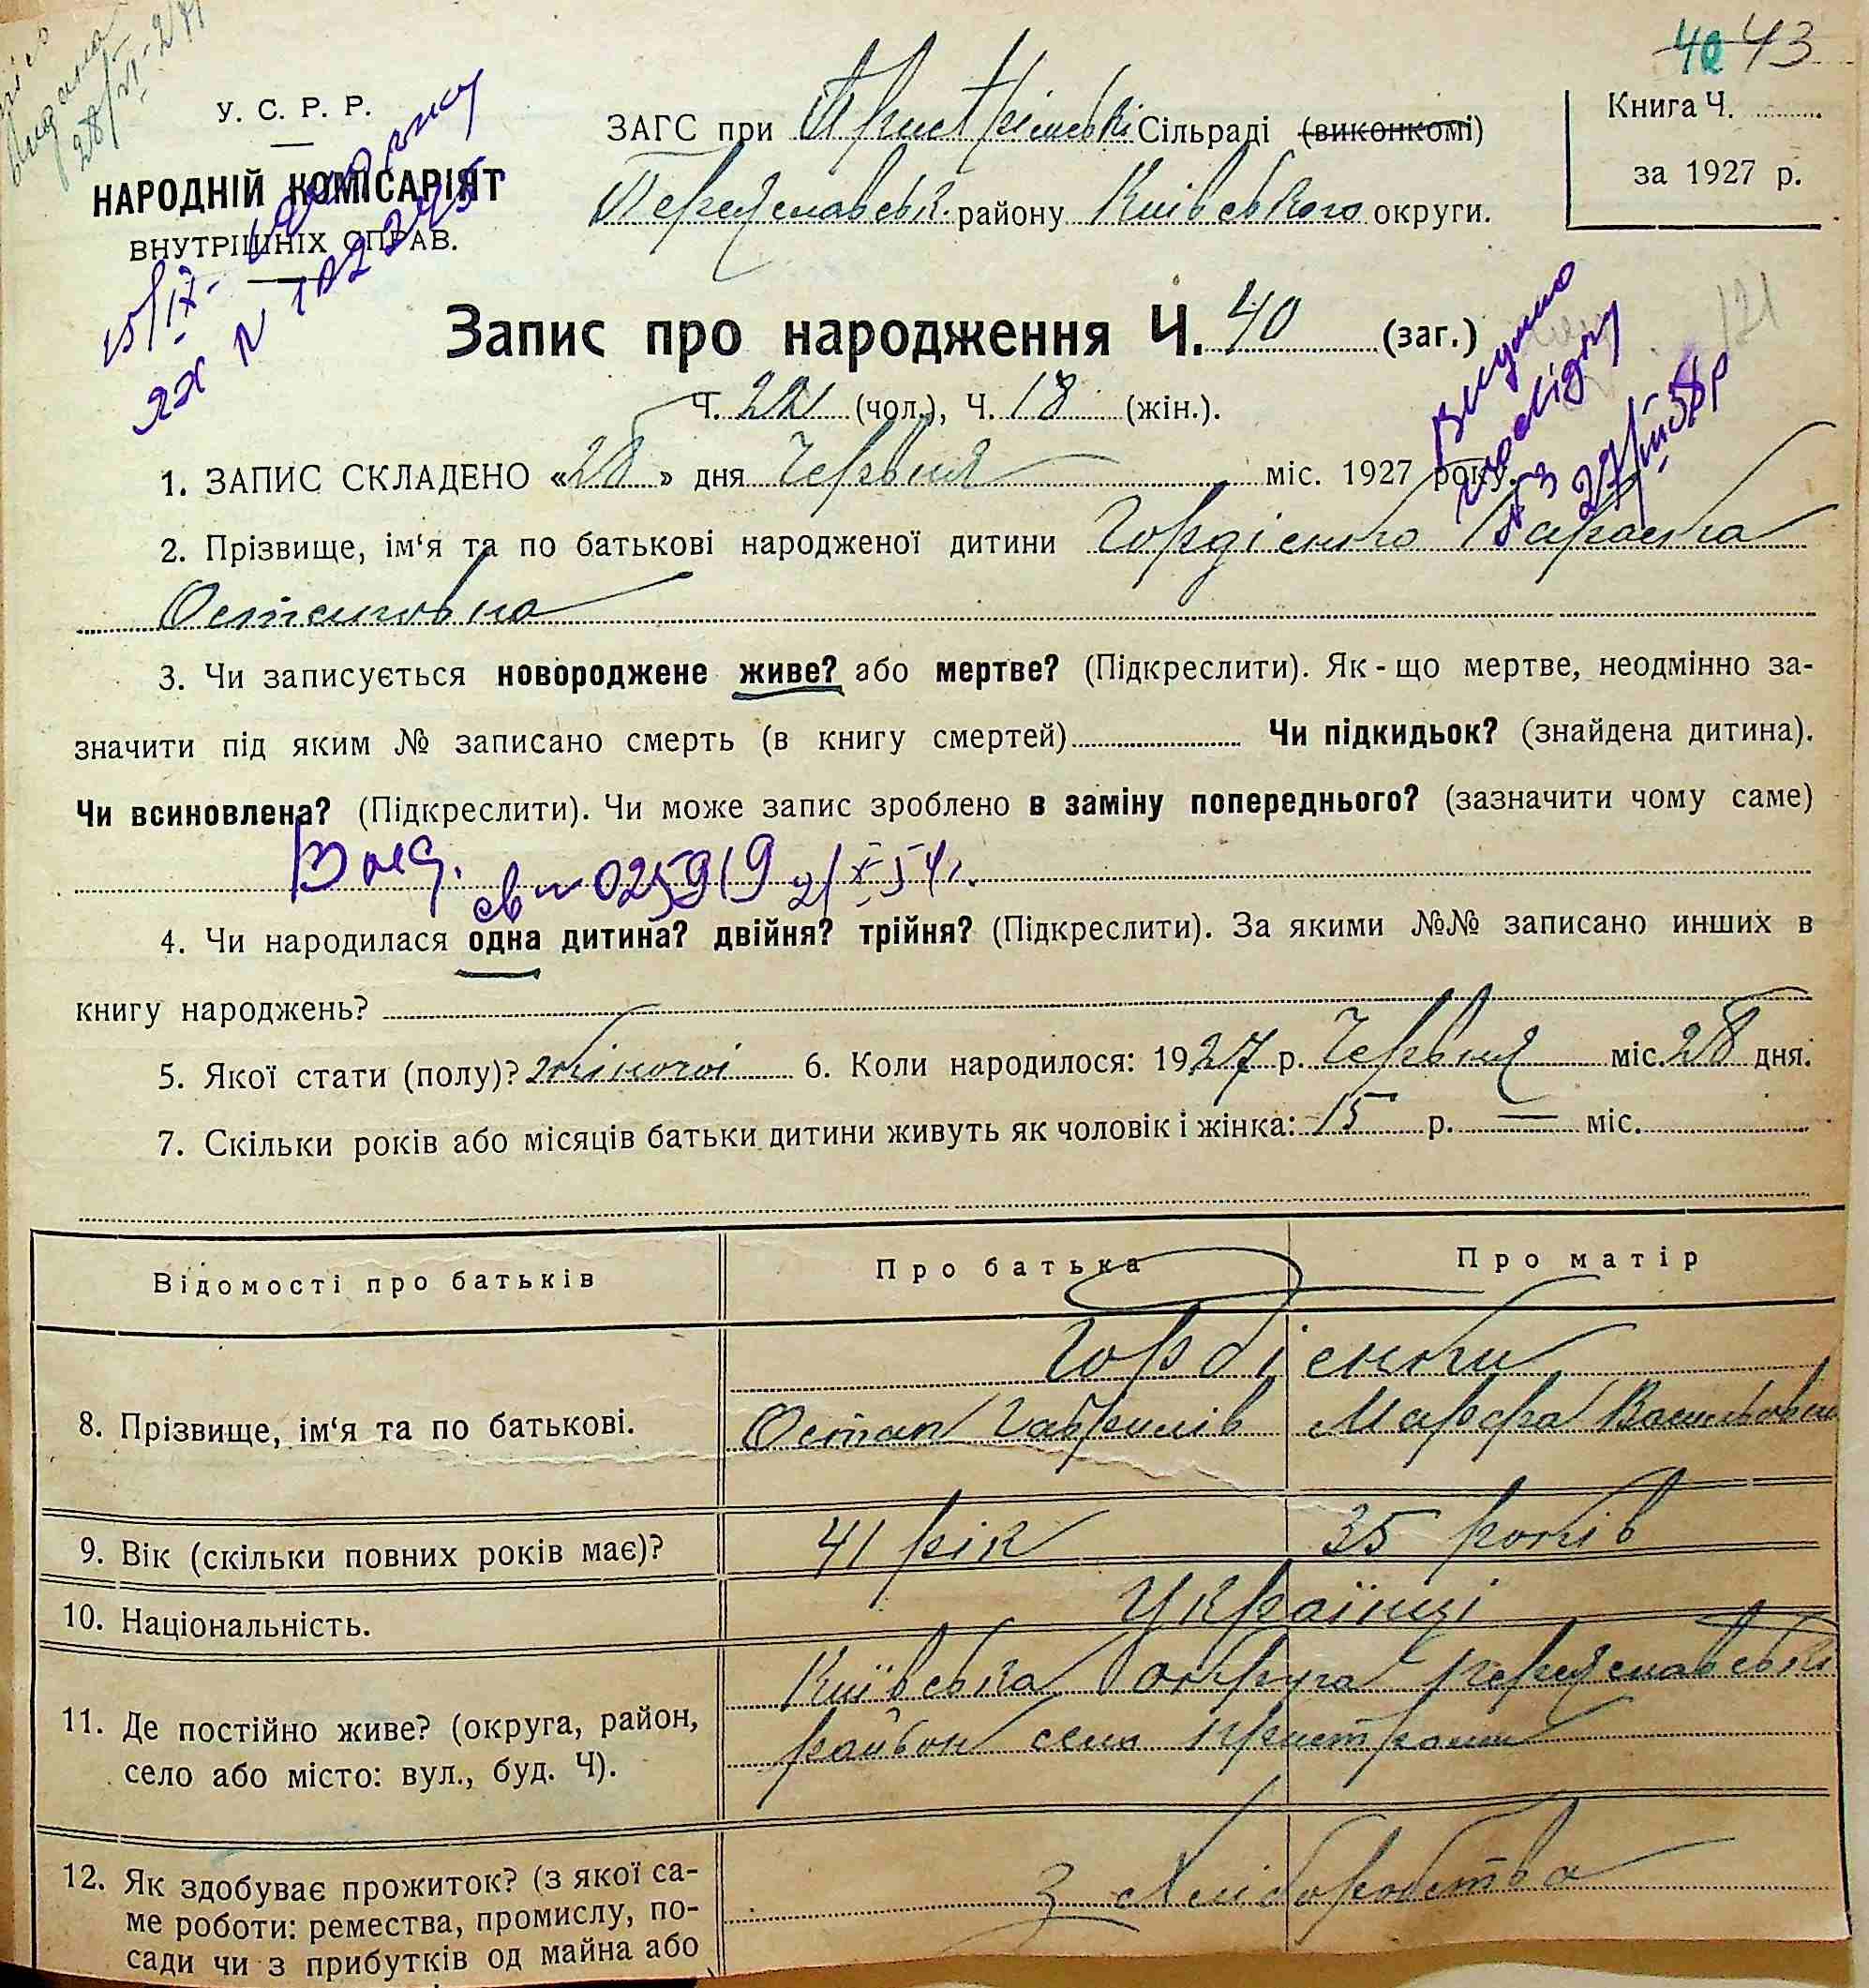 40 43
У. С. Р. Р.
НАРОДНІЙ КОМІСАРІЯТ
ВНУТРІШНІХ СПРАВ.
ЗАГС при Пристрімській Сільраді (виконкомі)
Переяславськ. району Київського округи.
Книга Ч.
за 1927 р.
15/IX-
ЯХ № 102
Запис про народження Ч. 40 (заг.)
121
Ч. 22 (чол.), Ч. 18 (жін.).
Видано
довідку
№ 3
27/III-58р
1. ЗАПИС СКЛАДЕНО «28» дня Червня міс. 1927 року.
2. Прізвище, ім‘я та по батькові народженої дитини Гордієнко Параска
Остаповна
3. Чи записується новороджене живе? або мертве? (Підкреслити). Як-що мертве, неодмінно за-
значити під яким № записано смерть (в книгу смертей) Чи підкидьок? (знайдена дитина).
Чи всиновлена? (Підкреслити). Чи може запис зроблено в заміну попереднього? (зазначити чому саме)
Выд. св № 025919 2/X-54г.
4. Чи народилася одна дитина? двійня? трійня? (Підкреслити). За якими №№ записано инших в
книгу народжень?
5. Якої стати (полу)? жіночої 6. Коли народилося: 1927 р. Червня міс. 28 дня.
7. Скільки років або місяців батьки дитини живуть як чоловік і жінка: 15 р. — міс.
Відомості про батьків Про батька Про матір
Гордієнки
8. Прізвище, ім‘я та по батькові. Остап Гаврилів Марфа Васильовна
9. Вік (скільки повних років має)? 41 рік 35 років
10. Національність. Українці
11. Де постійно живе? (округа, район,
село або місто: вул., буд. Ч).
Київська округа Переяславськ
район село Пристроми
12. Як здобуває прожиток? (з якої са-
ме роботи: ремества, промислу, по-
сади чи з прибутків од майна або
З хліборобства